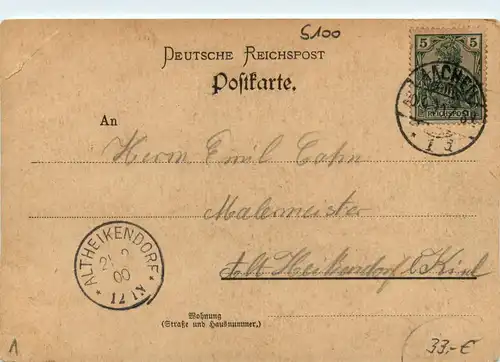 5100
DEUTSCHE REICHSPOST
Postkarte.
5
AACHEN
REICHSPOST
An
Herrn Emil Cahn
Malermeister
Alt Heikendorf b/Kiel
ALTHEIKENDORF
00
Wohnung
(Straße und Hausnummer.)
1
33.-€